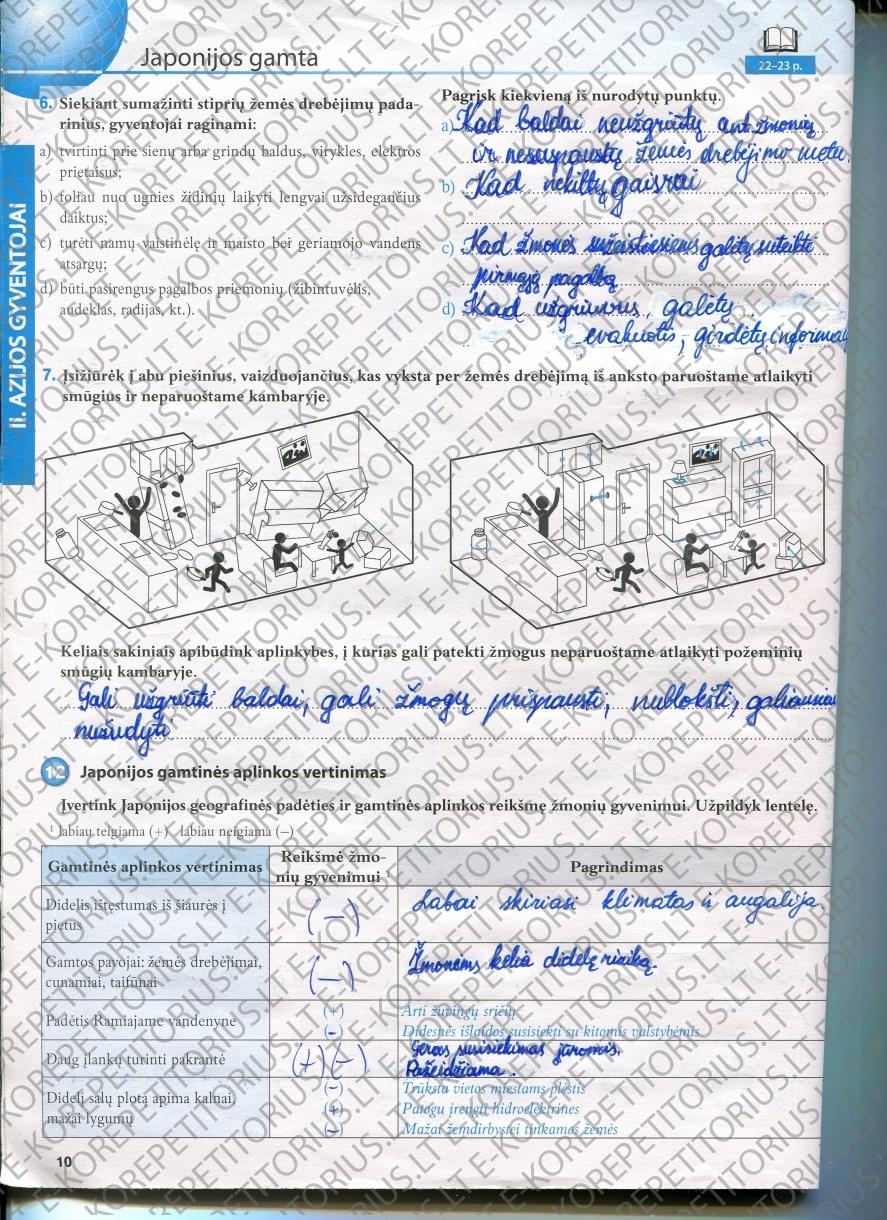 Japonijos gamta
22–23 p.
II. AZIJOS GYVENTOJAI
6. Siekiant sumažinti stiprių žemės drebėjimų pada-
rinius, gyventojai raginami:
a) tvirtinti prie sienų arba grindų baldus, virykles, elektros
prietaisus;
b) toliau nuo ugnies židinių laikyti lengvai užsidegančius
daiktus;
c) turėti namų vaistinėlę ir maisto bei geriamojo vandens
atsargų;
d) būti pasirengus pagalbos priemonių (žibintuvėlis,
audeklas, radijas, kt.).
Pagrįsk kiekvieną iš nurodytų punktų.
a) Kad baldai neužgriūtų ant žmonių
ir nesuspaustų žemės drebėjimo metu.
b) Kad nekiltų gaisrai
c) Kad žmonės sužeistiesiems galėtų suteikti
pirmąją pagalbą
d) Kad užgriuvus, galėtų
evakuotis, girdėtų informa
7. Įsižiūrėk į abu piešinius, vaizduojančius, kas vyksta per žemės drebėjimą iš anksto paruoštame atlaikyti
smūgius ir neparuoštame kambaryje.
Keliais sakiniais apibūdink aplinkybes, į kurias gali patekti žmogus neparuoštame atlaikyti požeminių
smūgių kambaryje.
Gali užgriūti baldai, gali žmogų prispausti, nublokšti, galiausiai
nužudyti
12 Japonijos gamtinės aplinkos vertinimas
Įvertink Japonijos geografinės padėties ir gamtinės aplinkos reikšmę žmonių gyvenimui. Užpildyk lentelę.
1 labiau teigiama (+) labiau neigiama (–)
Gamtinės aplinkos vertinimas
Reikšmė žmo-
nių gyvenimui 1
Pagrindimas
Didelis ištęstumas iš šiaurės į
pietus
(–)
Labai skiriasi klimatas ir augalija.
Gamtos pavojai: žemės drebėjimai,
cunamiai, taifūnai
(–)
Žmonėms kelia didelę riziką.
Padėtis Ramiajame vandenyne
(+) Arti žuvingų sričių
(–) Didesnės išlaidos susisiekti su kitomis valstybėmis
Daug įlankų turinti pakrantė
(+) (–)
Geras susisiekimas jūromis.
Pažeidžiama.
Didelį salų plotą apima kalnai,
mažai lygumų
(–) Trūksta vietos miestams plėstis
(+) Patogu įrengti hidroelektrines
(–) Mažai žemdirbystei tinkamos žemės
10
E-KOREPETITORIUS.LT